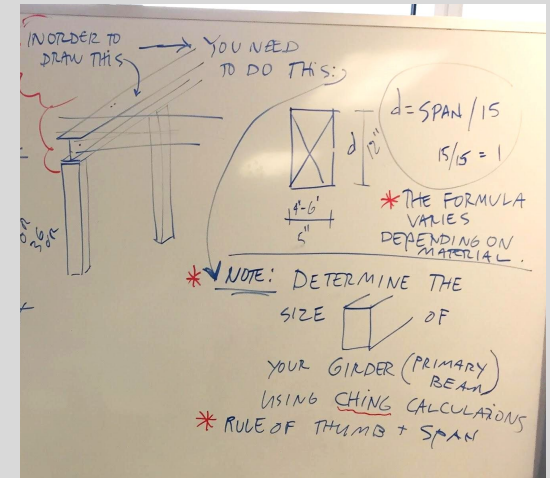 IN ORDER TO
DRAW THIS
YOU NEED
TO DO THIS:
d = SPAN / 15
15/15 = 1
d
12"
4'-6'
5"
* THE FORMULA
VARIES
DEPENDING ON
MATERIAL.
* NOTE: DETERMINE THE
SIZE OF
YOUR GIRDER (PRIMARY
BEAM)
USING CHING CALCULAIONS
* RULE OF THUMB + SPAN